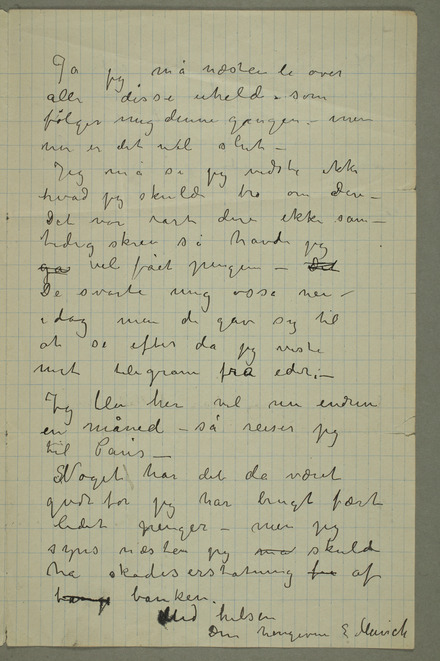 Ja jeg må næsten le over
alle disse uheld som
følger mig denne gangen – men
nu er det vel slut –
Jeg må se jeg vidste ikke
hvad jeg skulde tro om Dem –
Det var rart dere ikke sam–
tidig skrev så havde jeg
ga vel fået pengene – Det
De svarte mig osse nei –
idag men de gav sig til
at se efter da jeg viste
mit telegram fra eder; –
Jeg blir her vel nu endnu
en måned – så reiser jeg
til Paris –
Noget har det da været
godt for jeg har brugt fært
lidet penger – men jeg
syns næsten jeg skulde
ha skadeserstatning af
banken.
Med hilsen
Din hengivne E. Munch